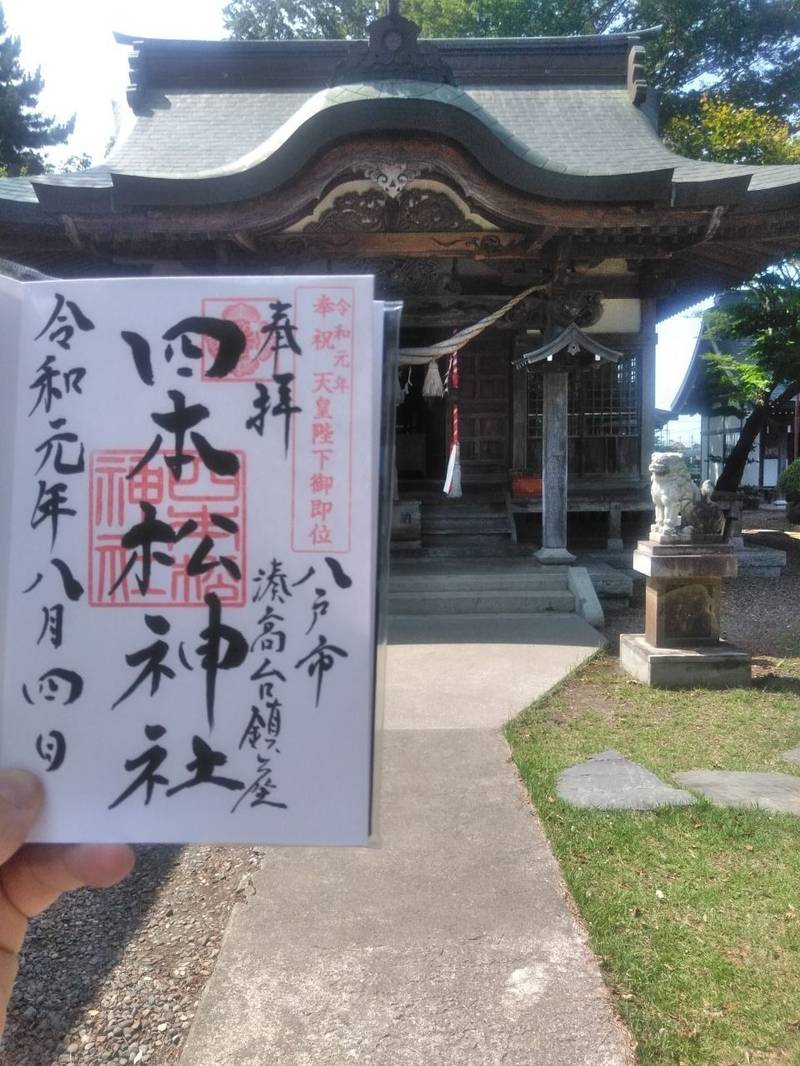 令和元年
奉祝 天皇陛下御即位
奉拝
八戸市
湊高台鎮座
四本松神社
四本松
神社
令和元年八月四日